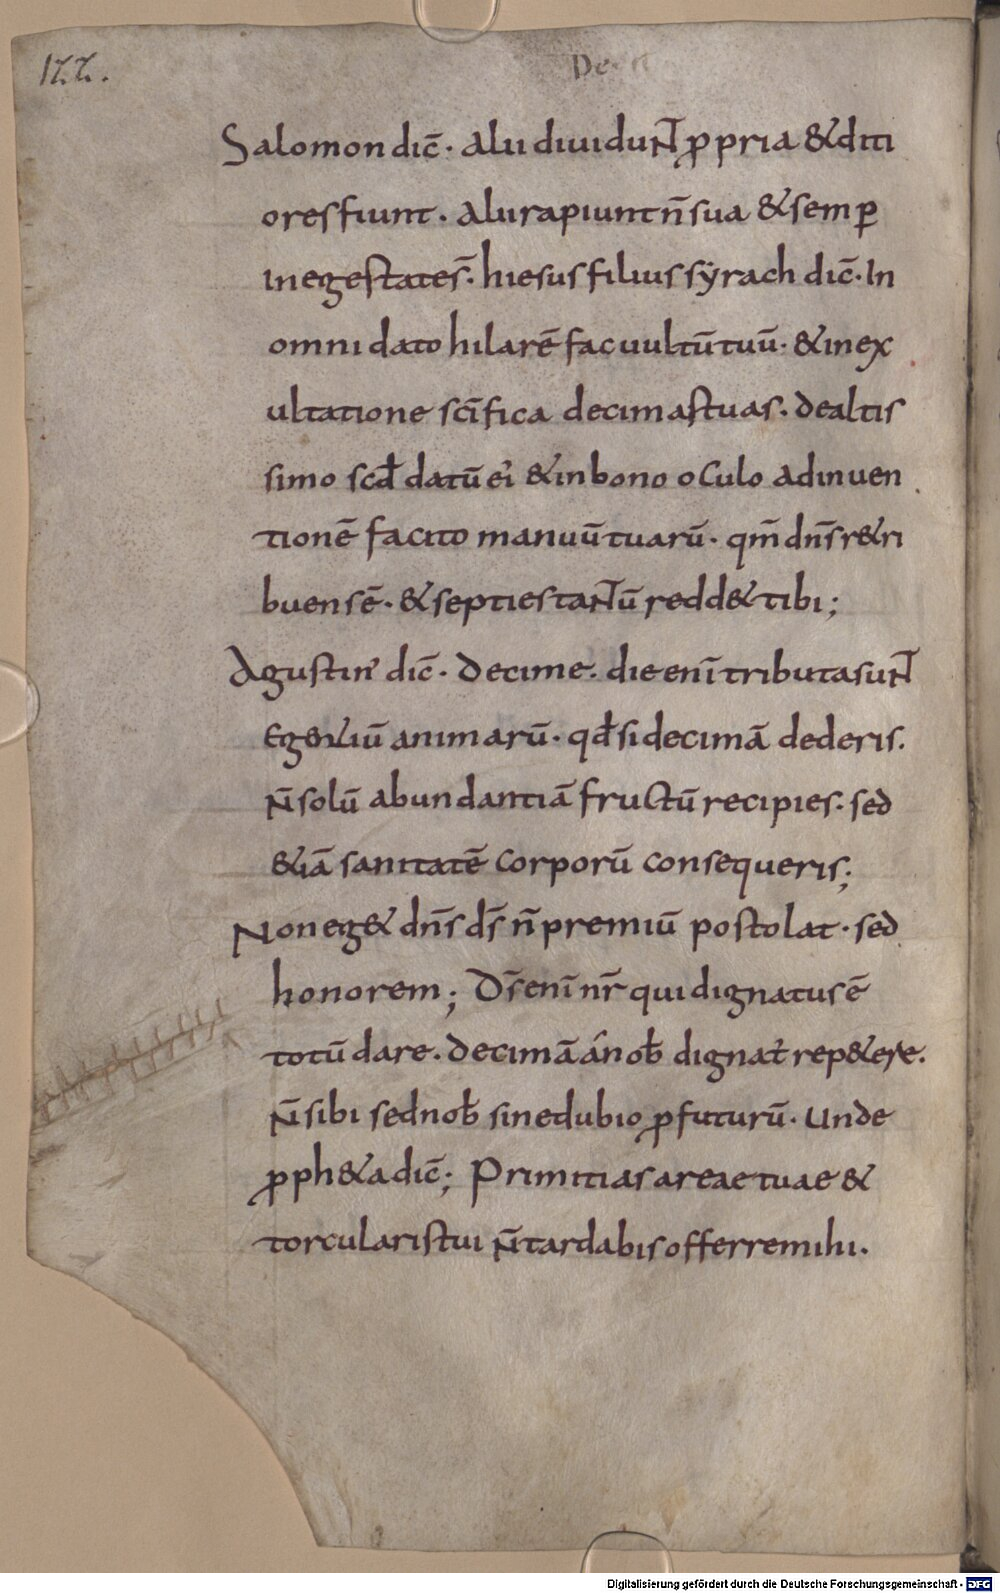 177.
De
Salomon dic̄. alii diuidunt ꝓpria & diti
ores fiunt. alii rapiunt n̄ sua & semꝑ
in egestate s̄. hiesus filius sẏrach dic̄. In
omni dato hilarē fac uultū tuū. & in ex
ultatione sc̄ifica decimas tuas. de altis
simo scd̄ datū ei & in bono oculo adinuen
tionē facito manuū tuarū. qm̄ dn̄s r&ri
buens ē. & septies tantū redd& tibi;
Agustin' dic̄. Decime. die eni̅ tributa sunt
egentiū animarū. qd̄ si decimā dederis.
n̄ solū abundantiā fructū recipies. sed
&iā sanitatē corporū consequeris;
Non eg& dn̄s ds̄ n̄ premiū postolat. sed
honorem; Ds̄ eni̅ nr̄ qui dignatus ē
totū dare. decimā á nob̄ dignat̄ rep&ere.
n̄ sibi sed nob̄ sine dubio ꝓfuturū. Unde
ꝓph&a dic̄; Primitias areae tuae &
torcularis tui n̄ tardabis offerre mihi.
Digitalisierung gefördert durch die Deutsche Forschungsgemeinschaft - DFG